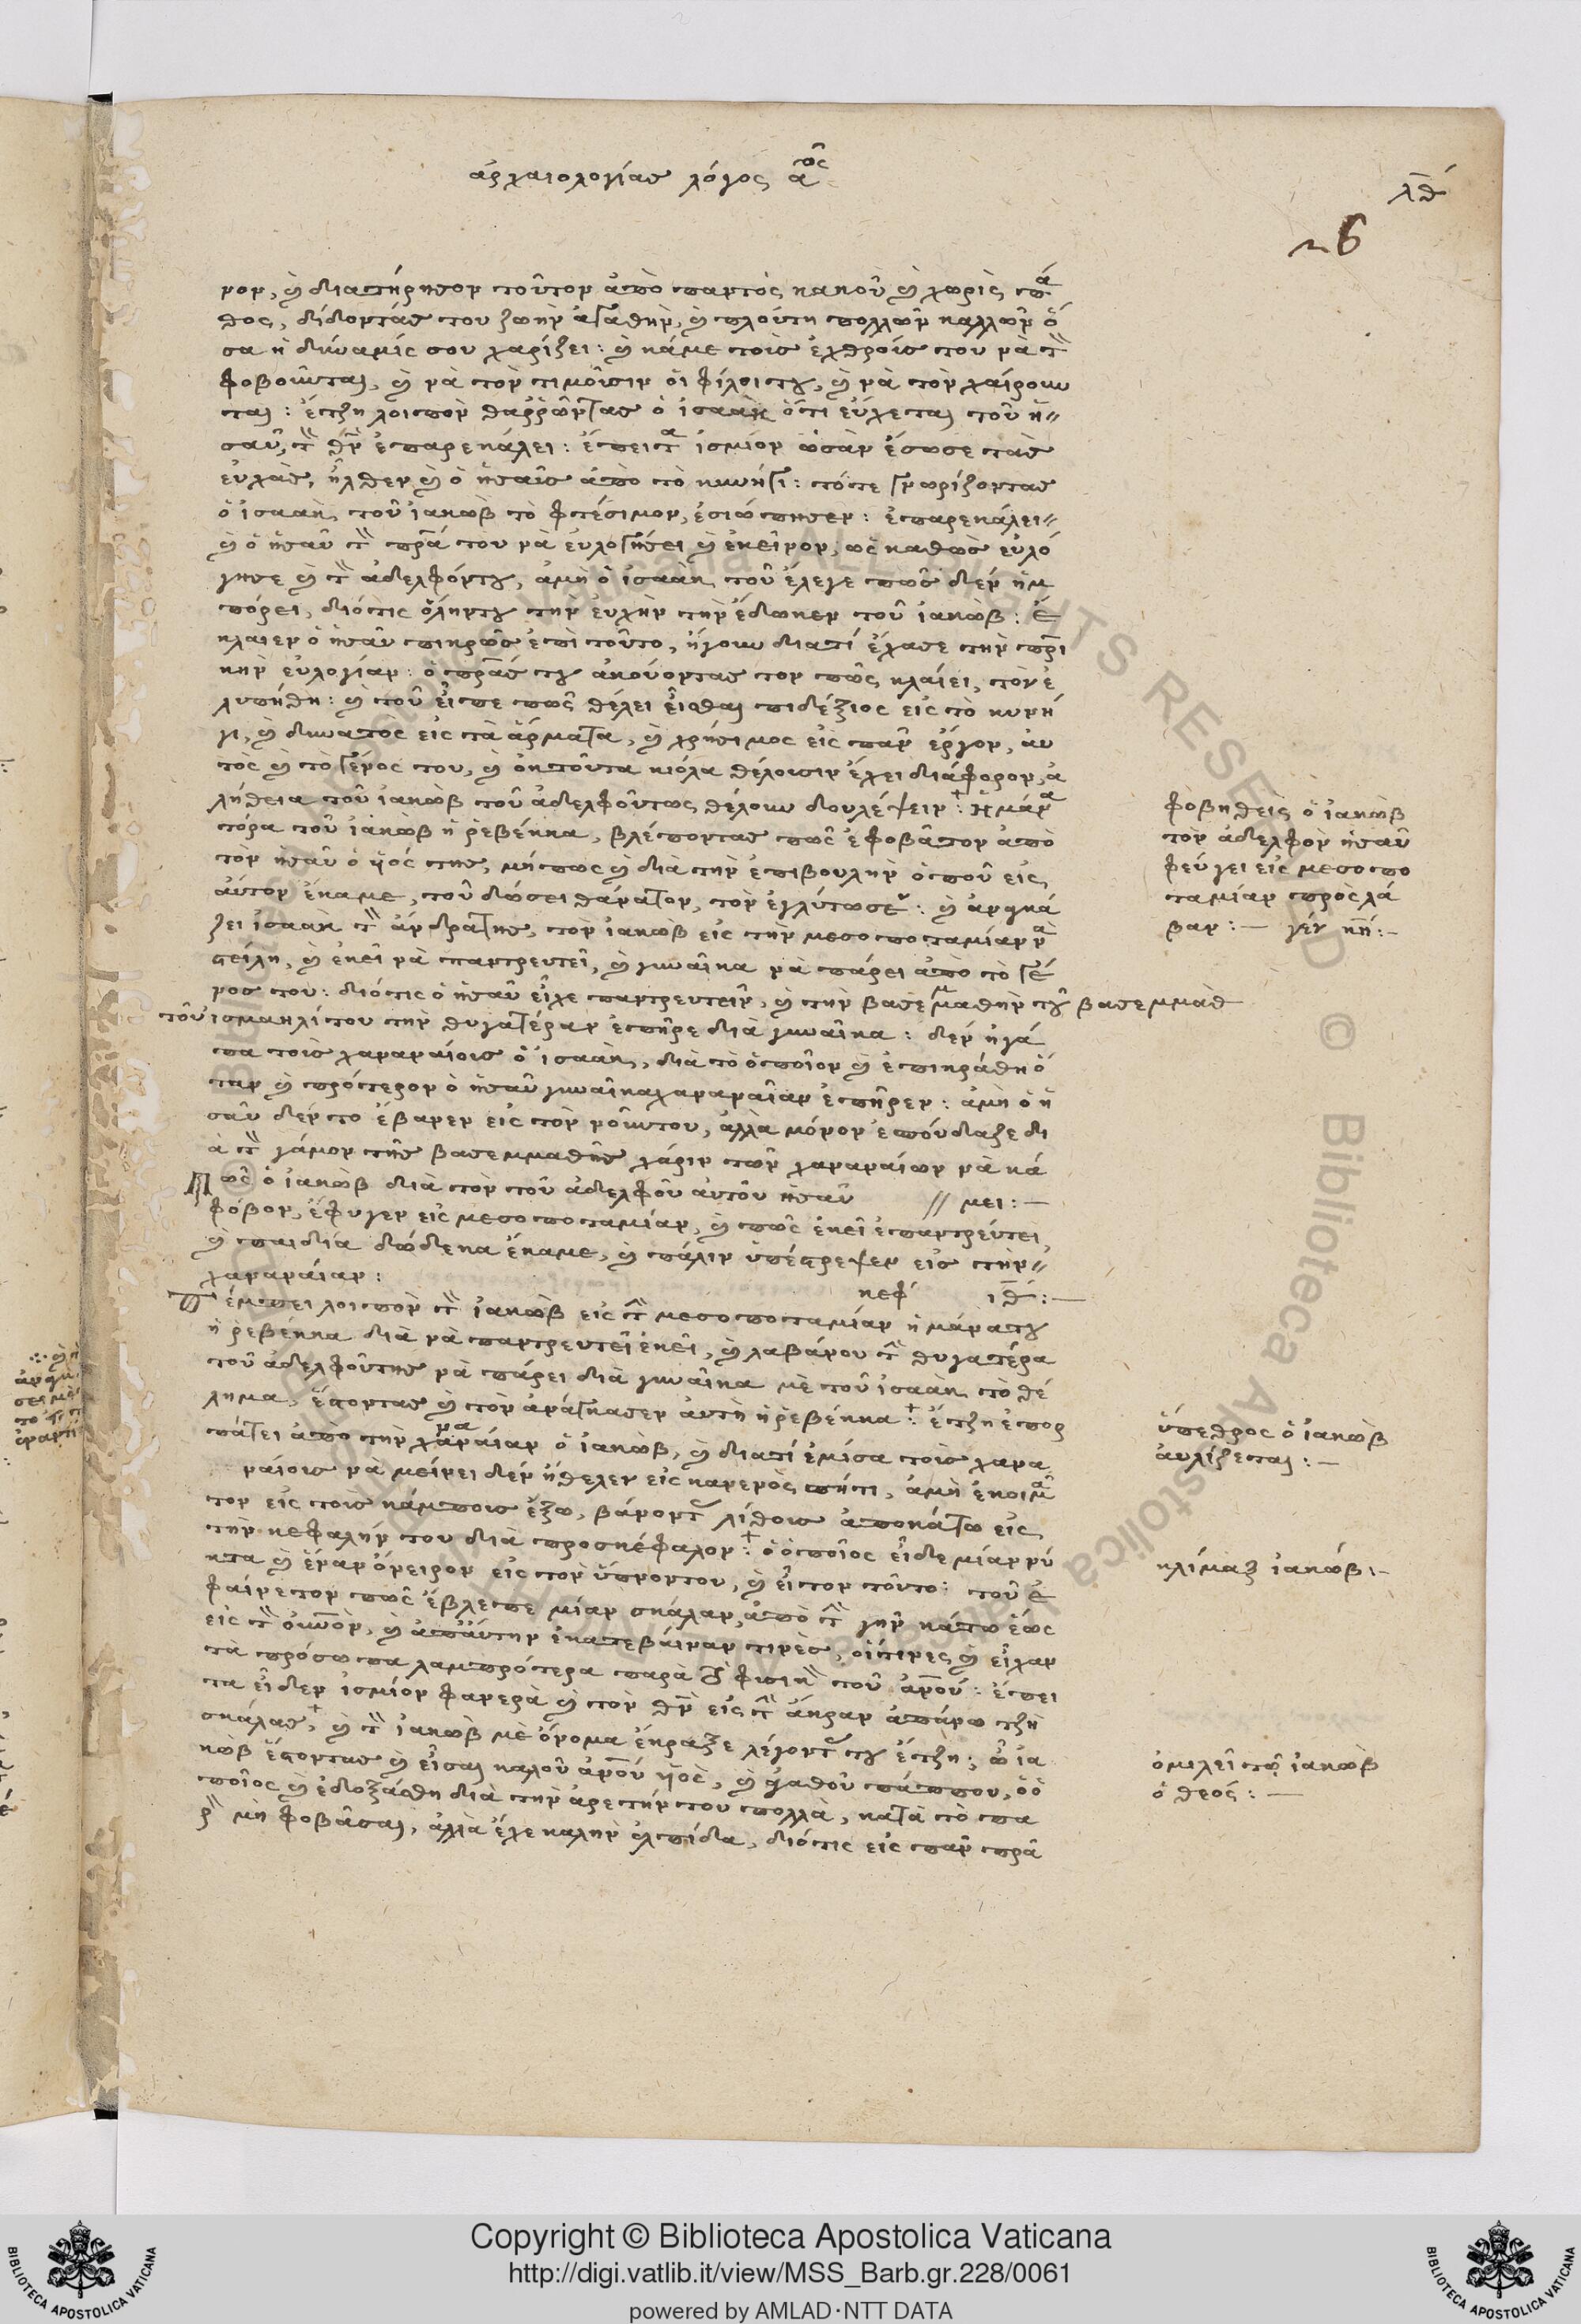 ἀρχαιολογίας λόγος α^ος
λθ
26
νον, καὶ διατήρησον τοῦτον ἀπὸ παντὸς κακοῦ καὶ χωρὶς πά
θος, δίδοντάς του ζωὴν ἀγαθὴν, καὶ πλούτη πολλῶν καλλῶν ὅ
σα ἡ δύναμίς σου χαρίζει: καὶ κάμε τοὶς ἐχθροίς του νὰ τὸν
φοβοῦνται, καὶ νὰ τὸν τιμοῦσιν οἱ φίλοι του, καὶ νὰ τὸν χαίρουν
ται: ἔτζη λοιπὸν θαῤῥῶντας ὁ ἰσαὰκ ὅτι εὔχεται τοῦ ἡ
σαῦ, τὸν θν ἐπαρεκάλει: ἔπειτα ἰσμίον ὡσὰν ἔσωσε τὰς
εὐχὰς, ἦλθεν καὶ ὁ ἡσαῦς ἀπὸ τὸ κυνήγι: τότε γνωρίζοντας
ὁ ἰσαὰκ τοῦ ἰακὼβ τὸ φτέσιμον, ἐσιώπησεν: ἐπαρεκάλει
καὶ ὁ ἡσαῦ τὸν πρα του νὰ εὐλογήσει καὶ ἐκεῖνον, ὡς καθὼς εὐλό
γησε καὶ τὸν ἀδελφόντου, ἀμὴ ὁ ἰσαὰκ τοῦ ἔλεγε πῶς δὲν ἠμ
πόρει, διότις ὅληντου τὴν εὐχὴν τὴν ἔδωκεν τοῦ ἰακὼβ: ἔ
κλαιεν ὁ ἡσαῦ πικρῶς ἐπὶ τοῦτο, ἤγουν διατί ἔχασε τὴν πρι
κὴν εὐλογίαν: ὁ πρας του ἀκούοντας τον πῶς κλαίει, τὸν ἐ
λυπήθη: καὶ τοῦ εἶπε πῶς θέλει εἶσθαι πιδέξιος εἰς τὸ κυνή
γι, καὶ δυνατὸς εἰς τὰ ἄρματα, καὶ χρήσιμος εἰς πᾶν ἔργον, αὐ
τὸς καὶ τὸ γένος του, καὶ ὁκτοῦτα κιόλα θέλουσιν ἔχει διάφορον, ἀ
λήθεια τοῦ ἰακὼβ τοῦ ἀδελφοῦντως θέλουν δουλέψειν: Ἡ μάνα
τόρα τοῦ ἰακὼβ ἡ ῥεβέκκα, βλέποντας πῶς ἐφοβᾶτον ἀπὸ
τὸν ἡσαῦ ὁ ὑός της, μήπως καὶ διὰ τὴν ἐπιβουλὴν ὁποῦ εἰς
αὐτὸν ἔκαμε, τοῦ δώσει θάνατον, τὸν ἐγλύτωσεν: καὶ ἀναγκά
ζει ἰσαὰκ τὸν ἄνδρατης, τὸν ἰακὼβ εἰς τὴν μεσοποταμίαν νὰ
στείλη, καὶ ἐκεῖ νὰ παντρευτεῖ, καὶ γυναῖκα νὰ πάρει ἀπὸ τὸ γέ
νος του: διότις ὁ ἡσαῦ εἶχε παντρευτεῖν, καὶ τὴν βασεμμαθὴν του βασεμμὰθ
τοῦ ἰσμαηλίτου τὴν θυγατέραν ἐπῆρε διὰ γυναῖκα: δὲν ἠγά
πα τοὶς χαναναίοις ὁ ἰσαὰκ, διὰ τὸ ὁποῖον καὶ ἐπικράθη ὅ
ταν καὶ πρότερον ὁ ἡσαῦ γυναῖκα χαναναῖαν ἐπῆρεν: ἀμὴ ὁ ἡ
σαῦ δὲν το ἔβανεν εἰς τὸν νοῦντου, ἀλλὰ μόνον ἐσπούδαζε δι
ὰ τὸν γάμον τῆς βασεμμαθῆς χάριν τῶν χαναναίων νὰ κά
Πῶς ὁ ἰακὼβ διὰ τὸν τοῦ ἀδελφοῦ αὐτοῦ ἡσαῦ // μει:—
φόβον, ἔφυγεν εἰς μεσοποταμίαν, καὶ πῶς ἐκεῖ ἐπαντρεύτει
καὶ παιδία δώδεκα ἔκαμε, καὶ πάλιν ὑπέστρεψεν εἰς τὴν
χαναναίαν:
κεφ ιθ:—
Πέμπει λοιπὸν τὸν ἰακὼβ εἰς τὴν μεσοποταμίαν ἡ μάνατου
ἡ ῥεβέκκα διὰ νὰ παντρευτεῖ ἐκεῖ, καὶ λαβάνου τὴν θυγατέρα
τοῦ ἀδελφοῦντης νὰ πάρει διὰ γυναῖκα μὲ τοῦ ἰσαὰκ τὸ θέ
λημα, ἔστοντας καὶ τὸν ἀνάγκασεν αὐτὴ ἡ ῥεβέκκα: ἔτζη ἐπορ
πάτει ἀπὸ τὴν χαναναίαν ὁ ἰακὼβ, καὶ διατί ἐμίσα τοὶς χανα
ναίοις νὰ μείνει δὲν ἤθελεν εἰς κανενὸς σπήτι, ἀμὴ ἐκοιμᾶ
τον εἰς τοὶς κάμποις ἔξω, βάνοντας λίθοις ἀποκάτω εἰς
τὴν κεφαλήν του διὰ προσκέφαλον: ὁ ὁποῖος εἶδε μίαν νύ
κτα καὶ ἕναν ὄνειρον εἰς τὸν ὕπνοντου, καὶ εἶτον τοῦτο: τοῦ ἐ
φαίνετον πῶς ἔβλεπε μίαν σκάλαν, ἀπὸ τὴν γῆν κάτω ἕως
εἰς τὸν οὐνὸν, καὶ ἀπαύτην ἐκατεβαίναν τινὲς, οἵτινες καὶ εἶχαν
τὰ πρόσωπα λαμπρότερα παρὰ τὴν φυσικὴν τοῦ ἀνου: ἔπει
τα εἶδεν ἰσμίον φανερὰ καὶ τὸν θν εἰς τὴν ἄκραν ἀπάνω τζὴ
σκάλας, καὶ τὸν ἰακὼβ μὲ ὄνομα ἔκραξε λέγοντας του ἔτζη: ὦ ἰα
κὼβ ἔστοντας καὶ εἶσαι καλοῦ ἀνου ὑὸς, καὶ ἀγαθοῦ πάππου, ὁ ὁ
ποῖος καὶ ἐδοξάσθη διὰ τὴν ἀρετήν του πολλὰ, κατὰ τὸ πα
ρὸν μὴ φοβᾶσαι, ἀλλὰ ἔχε καλὴν ἐλπίδα, διότις εἰς πᾶν πρᾶ
φοβηθεὶς ὁ ἰακὼβ
τὸν ἀδελφὸν ἡσαῦ
φεύγει εἰς μεσοπο
ταμίαν πρὸς λά
βαν:— γέν κη:—
ὕπεθρος ὁ ἰακὼβ
αὐλίζεται:—
κλίμαξ ἰακώβ:—
ὁμιλεῖ τῷ ἰακὼβ
ὁ θεός:—
Copyright © Biblioteca Apostolica Vaticana
http://digi.vatlib.it/view/MSS_Barb.gr.228/0061
powered by AMLAD·NTT DATA